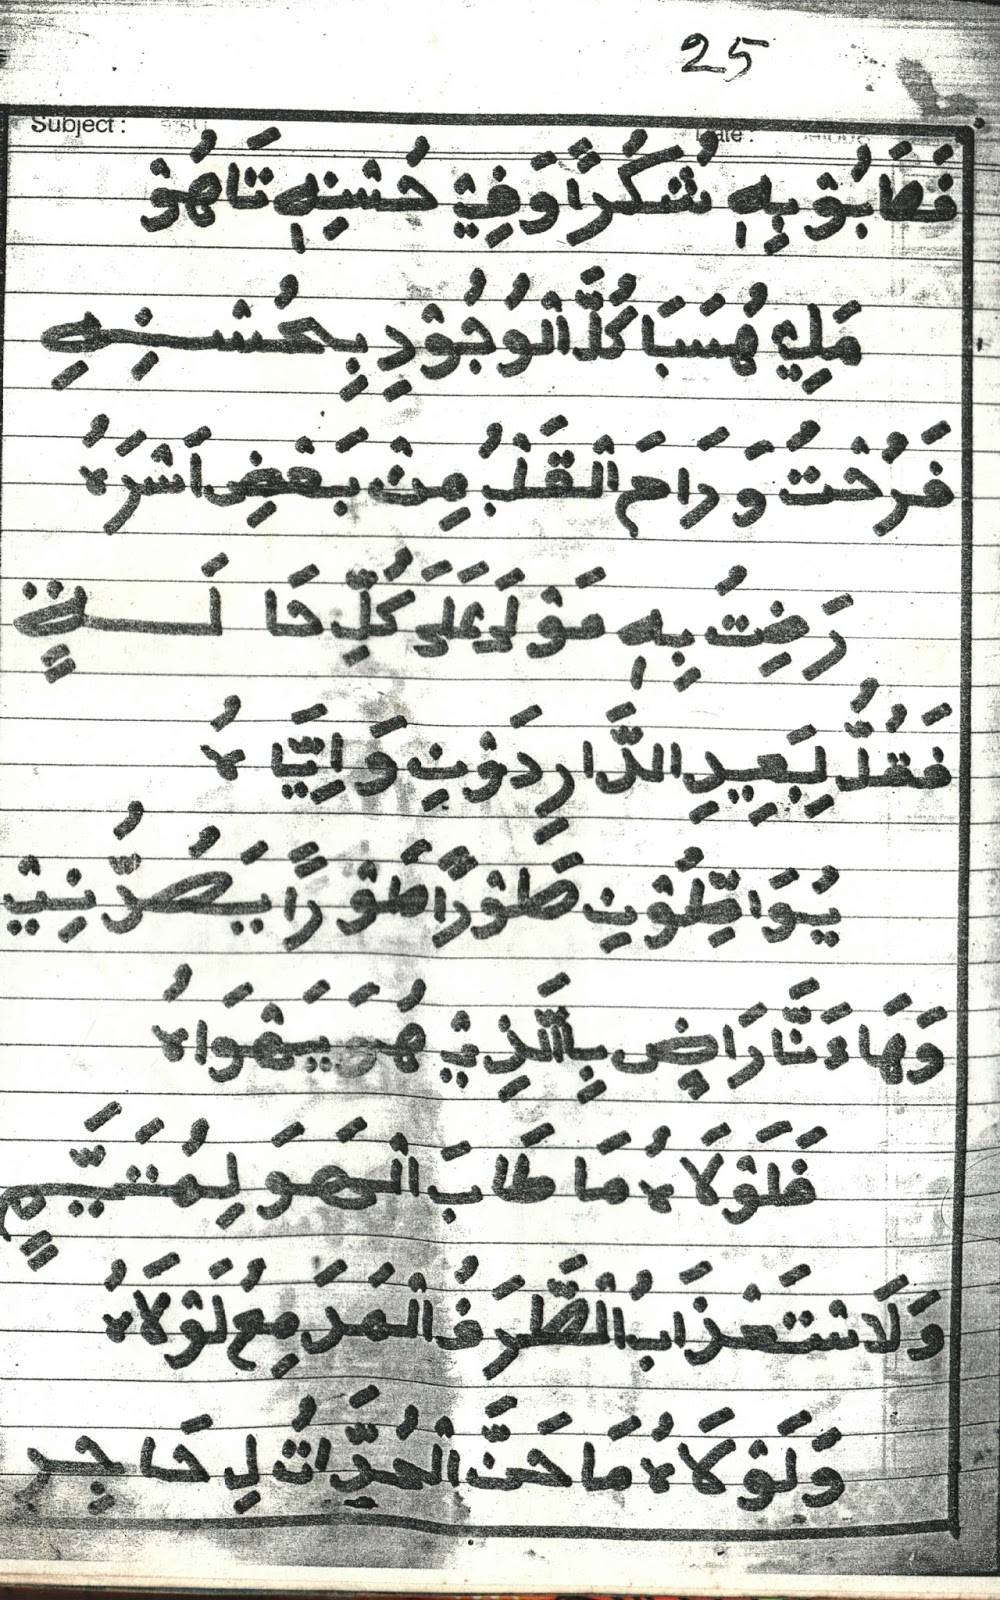 25
Subject :
Date :
فَطَابُوْ بِهٖ شُكْرًا وَفِيْ حُسْنِهٖ تَاهُوْ
مَلِيْ هُسَبَا كُلَّ الْوُجُوْدِ بِحُسْنِهِ
فَرُحْتُ وَرَامَ الْقَلْبُ مِنْ بَعْضِ اَسْرَهُ
رَضِتُ بِهٖ مَوْلَى عَلَى كُلِّ حَا لَـــةٍ
فَقُلُّ لِبَعِيدِ الدَّارِ دَوْنِ وَاِيَّا هُ
يُوَاصِلُوْنِ طَوْرًا طَوْرًا يَصُرُّنِيْ
وَهَا وَنَّا رَاضٍ بِالَّذِيْ هُوَ يَهْوَاهُ
فَلَوْلَاهُ مَا طَابَ الْهَوَ لِمُتَيَّمٍ
وَلَا سْتَعْزَابُ الطَّرَفُ الْمَرَمِعُ لَوْلَاهُ
وَلَوْلَاهُ مَا حَنَّ الْحُرَّاتُ لِحَا جِرِ